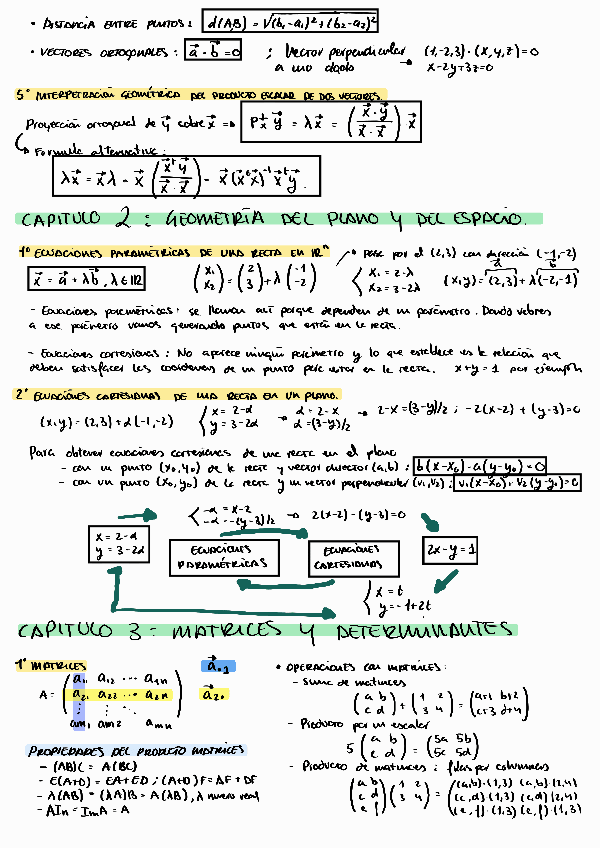 • DISTANCIA ENTRE PUNTOS: d(A,B) = √(b₁-a₁)²+(b₂-a₂)²
• VECTORES ORTOGONALES: a⃗·b⃗=0 ; Vector perpendicular a uno dado → (1,-2,3)·(x,y,z)=0
x-2y+3z=0
5º INTERPRETACIÓN GEOMÉTRICA DEL PRODUCTO ESCALAR DE DOS VECTORES.
Proyección ortogonal de y⃗ sobre x⃗ ⇒ P y⃗ = λx⃗ = (x⃗·y⃗ / x⃗·x⃗) x⃗
Formula alternativa:
λx⃗ = x⃗λ = x⃗ (x⃗ᵗy⃗ / x⃗·x⃗) = x⃗(x⃗ᵗx⃗)⁻¹x⃗ᵗy⃗.
CAPITULO 2: GEOMETRÍA DEL PLANO Y DEL ESPACIO.
1º ECUACIONES PARAMÉTRICAS DE UNA RECTA EN ℝⁿ → pasa por el (2,3) con dirección (-1,-2)
x⃗ = a⃗ + λb⃗, λ∈ℝ (x₁ x₂) = (2 3) + λ(-1 -2) { x₁ = 2-λ (x,y) = (2,3)+λ(-2,-1)
x₂ = 3-2λ
- Ecuaciones paramétricas: se llaman así porque dependen de un parámetro. Dando valores
a ese parámetro vamos generando puntos que están en la recta.
- Ecuaciones cartesianas: No aparece ningún parámetro y lo que establece es la relación que
deben satisfacer las coordenadas de un punto para estar en la recta. x+y=1 por ejemplo
2º ECUACIONES CARTESIANAS DE UNA RECTA EN UN PLANO.
(x,y) = (2,3)+α(-1,-2) { x = 2-α → α = 2-x → 2-x=(3-y)/2 ; -2(x-2)+(y-3)=0
y = 3-2α α = (3-y)/2
Para obtener ecuaciones cartesianas de una recta en el plano
- con un punto (x₀,y₀) de la recta y vector director (a,b): b(x-x₀)-a(y-y₀)=0
- con un punto (x₀,y₀) de la recta y un vector perpendicular (v₁,v₂): v₁(x-x₀)+v₂(y-y₀)=0
{ -α = x-2 → 2(x-2)-(y-3)=0
-α = (y-3)/2
x = 2-α
y = 3-2α
ECUACIONES PARAMÉTRICAS
ECUACIONES CARTESIANAS
2x-y=1
{ x = t
y = -1+2t
CAPITULO 3: MATRICES Y DETERMINANTES
1º MATRICES a⃗.₁
A = (a₁₁ a₁₂ ... a₁n
a₂₁ a₂₂ ... a₂n a⃗₂.
⋮ ⋮
am₁ am₂ amn)
PROPIEDADES DEL PRODUCTO MATRICES
- (AB)C = A(BC)
- E(A+D) = EA+ED ; (A+D)F = AF+DF
- λ(AB) = (λA)B = A(λB), λ número real
- AIn = ImA = A
• OPERACIONES CON MATRICES:
- Suma de matrices
(a b c d) + (1 2 3 4) = (a+1 b+2 c+3 d+4)
- Producto por un escalar
5 (a b c d) = (5a 5b 5c 5d)
- Producto de matrices: filas por columnas
(a b c d e f) (1 2 3 4) = ((a,b)·(1,3) (a,b)·(2,4)
(c,d)·(1,3) (c,d)(2,4)
(e,f)·(1,3) (e,f)·(1,3)